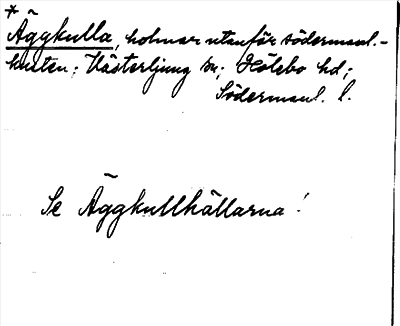 * Äggkulla, holmar utanför södermanl.-
kusten; Västerljung sn; Hölebo hd;
Södermanl. l.
Se Äggkullhällarna!